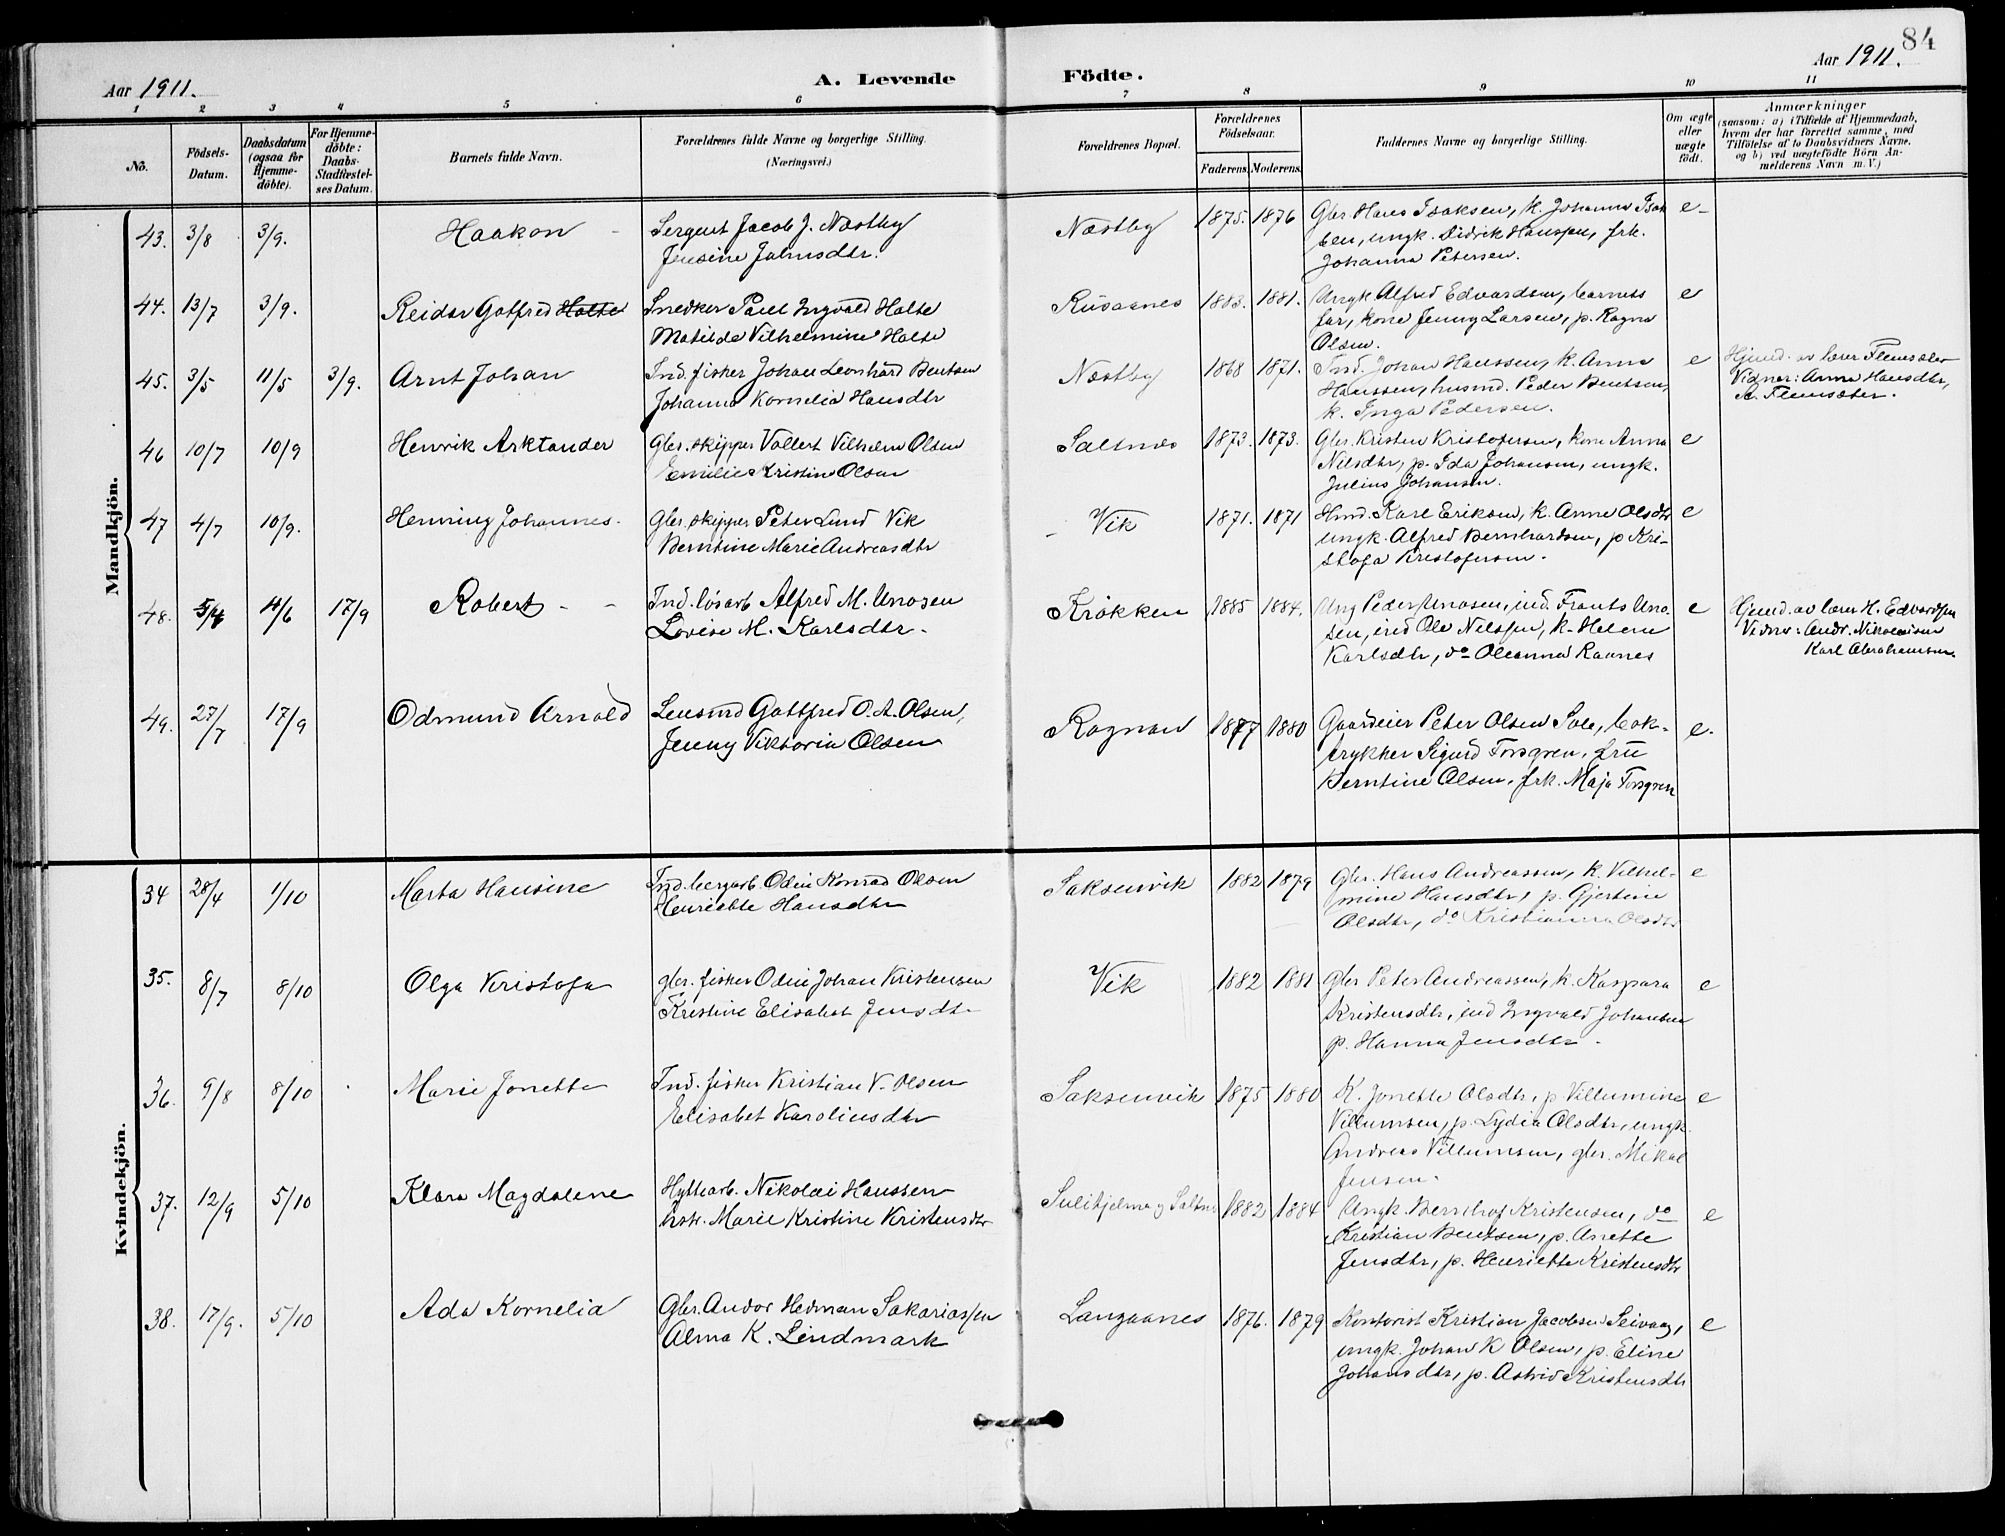 84
Aar 1911.
A. Levende
Födte.
Aar 1911.
1 2 3 4 5 6 7 8 9 10 11
No.
Födsels-
Datum.
Daabsdatum
(ogsaa for
Hjemme-
döbte).
For Hjemme-
döbte:
Daabs-
Stadfæstel-
ses Datum.
Barnets fulde Navn.
Forældrenes fulde Navne og borgerlige Stilling.
(Næringsvei.)
Forældrenes Bopæl.
Forældrenes
Födselsaar.
Faderens. Moderens.
Faddernes Navne og borgerlige Stilling.
Om ægte
eller
uægte
født.
Anmærkninger
(saasom: a) i Tilfælde af Hjemmedaab,
hvem der har forrettet samme, med
Tilföielse af to Daabsvidners Navne,
og b) ved uægtefödte Börn An-
melderens Navn m. V.)
Mandkjön.
43. 3/8 3/9. Haakon
Sergent Jacob J. Næstby
Jensine Jakobsdtr.
Næstby 1875. 1876
Gbr. Hans Isaksen, k. Johanna Isak
sen, ungk. Didrik Hanssen, frk.
Johanna Petersen.
e
44. 13/7 3/9. Reidar Gotfred Holte
Snedker Paul Ingvald Holte
Matilde Vilhelmine Holte
Rusaanes 1883. 1881.
Ungk. Alfred Edvardsen, barnets
far, kone Jenny Larsen, p. Ragna
Olsen.
e
45. 3/5 11/5 3/9. Arnt Johan
Ind. fisker Johan Leonhard Bentsen
Johanna Kornelia Hansdtr
Næstby 1868 1871.
Ind. Johan Hanssen, k. Anna
Hanssen, husmd. Peder Bentsen,
k. Inga Pedersen.
e
Hjemd. av lærer Flemsæter
Vidner: Anna Hansdtr,
A. Flemsæter.
46 10/7 10/9 Henrik Arktander
Gbr. skipper Vollert Vilhelm Olsen
Emilie Kristine Olsen
Saltnes 1873. 1873.
Gbr. Kristen Kristofersen, kone Anna
Nilsdtr, p. Ida Johansen, ungk.
Julius Johansen.
e
47 4/7 10/9. Henning Johannes
Gbr. skipper Peter Lund Vik
Berntine Marie Andreasdtr
Vik 1871. 1871
Hmd. Karl Eriksen, k. Anne Olsdtr
ungk. Alfred Bernhardsen, p Kri-
stofa Kristofersen.
e
48. 5/4 4/6 17/9 Robert
Ind. løsarb Alfred M. Unosen
Lovise M. Karlsdtr.
Krokken 1885 1884.
Ung Peder Unosen, ind. Frants Uno-
sen, ind Ole Nilssen, k. Helene
Karlsdtr, do Oleanna Raanes
e
Hjemd. av lærer H. Edvardsen
Vidner: Andr. Nikolaisen
Karl Abrahamsen.
49. 27/7 17/9 Odmund Arnold
Lensmd Gottfred O. A. Olsen,
Jenny Viktoria Olsen
Rognan 1877 1880
Gaardeier Peter Olsen Sole, bok-
trykker Sigurd Forsgren, fru
Berntine Olsen, frk. Maja Forsgren
e.
Kvindekjön.
34 28/4 1/10 Marta Hansine
Ind. bergarb. Odin Konrad Olsen
Henriette Hansdtr
Saksenvik 1882 1879
Gbr. Hans Andreassen, k. Vilhel-
mine Hansdtr, p. Gjertine
Olsdtr, do Kristianna Olsdtr
e
35. 8/7 8/10 Olga Kristofa
Gbr. fisker Odin Johan Kristensen
Kristine Elisabet Jensdtr
Vik 1882 1881
Gbr Peter Andreassen, k. Kaspara
Kristensdtr, ind Ingvald Johansen
p. Hanna Jensdtr.
e
36. 9/8 8/10 Marie Jonette
Ind. fisker Kristian V. Olsen
Elisabet Karoliusdtr
Saksenvik 1875 1880
K. Jonette Olsdtr, p Villumine
Villumsen, p. Lydia Olsdtr, ungk.
Andreas Villumsen, gbr. Mikal
Jensen.
e
37. 12/9 5/10 Klara Magdalene
Hyttearb. Nikolai Hanssen
hstr. Marie Kristine Kristensdtr
Sulitjelma og Saltnes 1882 1884
Ungk. Bernhof Kristensen, do
Kristian Bentsen, p. Anette
Jensdtr, p. Henriette Kristensdtr
e
38. 17/9. 5/10 Ada Kornelia
Gbr. Andor Hedman Sakariassen
Alma K. Lindmark
Langaanes 1876. 1879
Kontorist Kristian Jacobsen Seivaag,
ungk. Johan K Olsen, p. Eline
Johansdtr, p. Astrid Kristensdtr
e